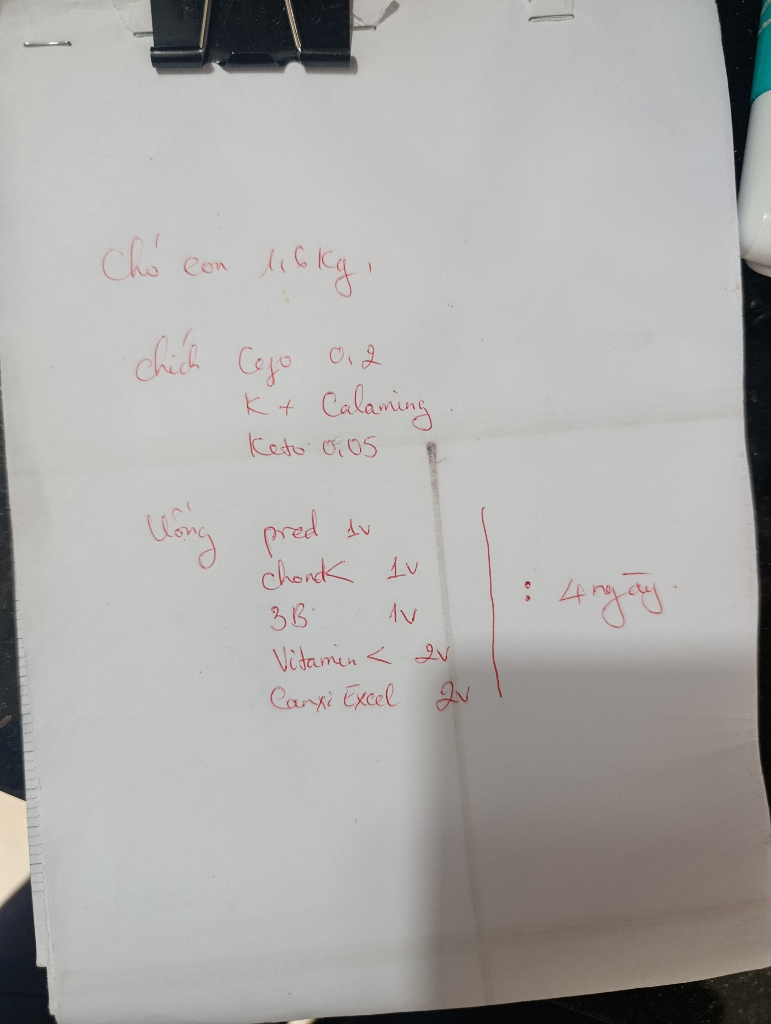 Chó con 1,6 Kg,
chích Cejo 0,2
K + Calaming.
Keto 0,05
Uống pred 1v
chonK 1v
3B 1v
Vitamin C 2v
Canxi Excel 2v
: 4 ngày.